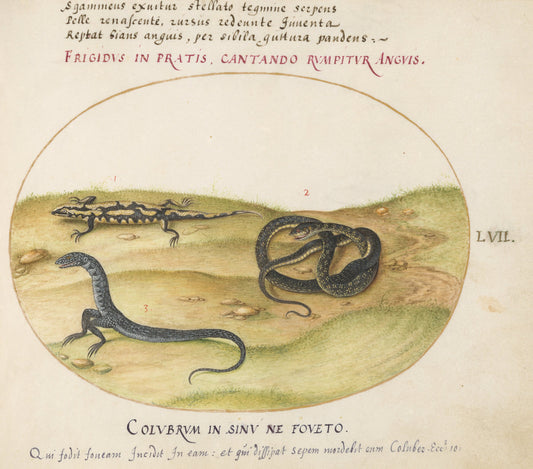 Sqammeus exuitur stellato tegmine serpens
Pelle renascente, rursus redeunte Iuventa
Reptat hians anguis, per sibila guttura pandens :~
FRIGIDVS IN PRATIS, CANTANDO RVMPITVR ANGVIS.
1
2
LVII.
3
COLVBRVM IN SINV NE FOVETO.
Qui fodit foueam Incidit In eam : et qui dissipat sepem mordebit eum Coluber. Eccl. 10.